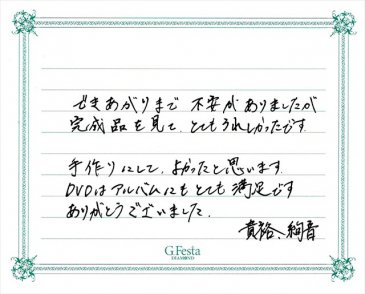 できあがりまで 不安が ありましたが
完成品を見て、とてもうれしかったです。
手作りにして、よかったと思います。
DVDはアルバムにもとても満足です
ありがとうございました。
貴裕、絢音
G.Festa
DIAMOND